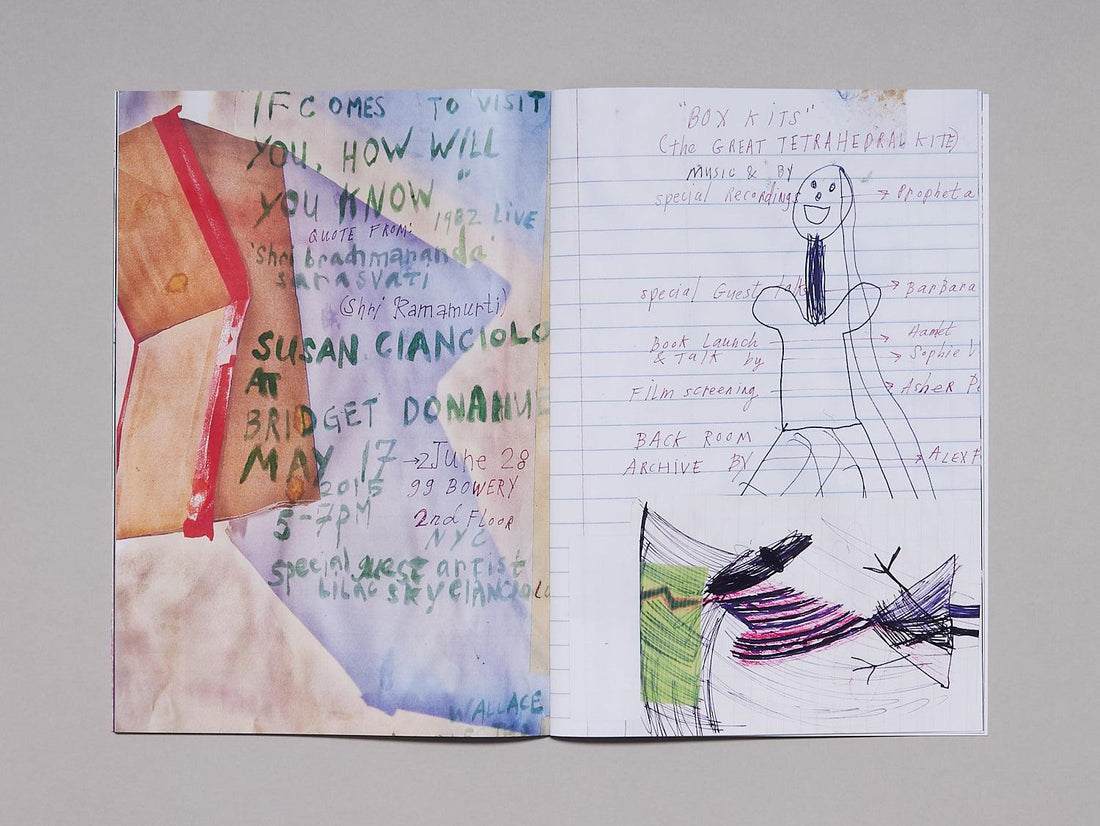 IF COMES TO VISIT
YOU, HOW WILL
YOU KNOW"
1982 LIVE
QUOTE FROM:
'Shri brachmananda'
sarasvati
(Shri Ramamurti)
SUSAN CIANCIOLO
AT
BRIDGET DONAHUE
MAY 17 → June 28
2015 99 BOWERY
5-7pM 2nd FLOOR
NYC
special guest artist
LILAC SKY CIANCIOLO
WALLACE
"BOX KiTS"
(the GREAT TETRAHEDRAL KITE)
Music & BY
special Recordings → Propheta
special Guest Talk → BarBara
Book Launch → Hamet
& Talk by → Sophie V
Film screening → Asher Pe
BACK ROOM
ARCHIVE BY → ALEX F